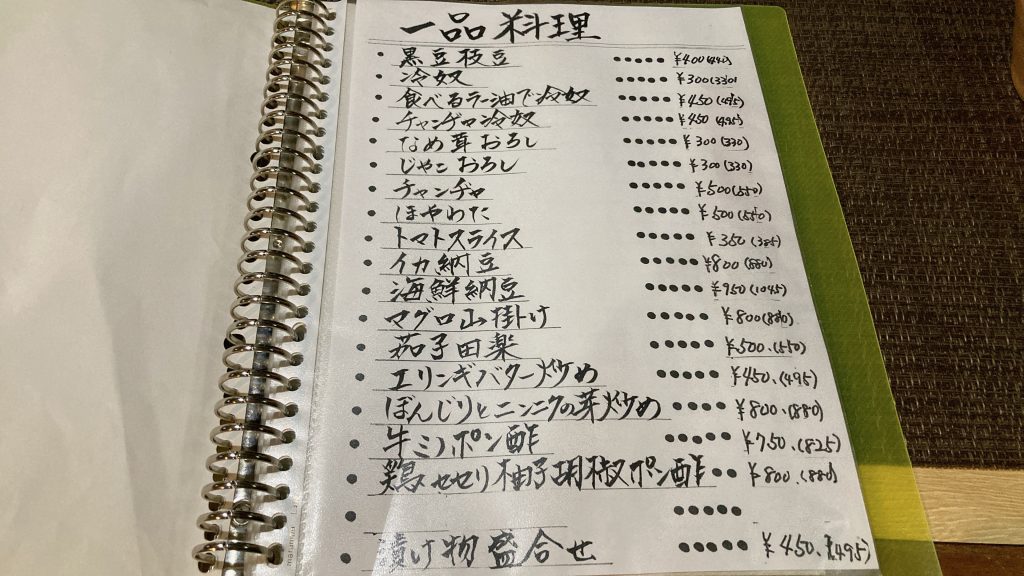 一品料理
・黒豆枝豆 ••••• ¥400(440)
・冷奴 ••••• ¥300(330)
・食べるラー油で冷奴 ••••• ¥450(495)
・チャンヂャ冷奴 ••••• ¥450(495)
・なめ茸おろし ••••• ¥300(330)
・じゃこおろし ••••• ¥300(330)
・チャンヂャ ••••• ¥500(550)
・ほやわた ••••• ¥500(550)
・トマトスライス ••••• ¥350(385)
・イカ納豆 ••••• ¥800(880)
・海鮮納豆 ••••• ¥950(1045)
・マグロ山掛け ••••• ¥800(880)
・茄子田楽 ••••• ¥500(550)
・エリンギバター炒め ••••• ¥450.(495)
・ぼんじりとニンニクの芽炒め ••••• ¥800.(880)
・牛ミノポン酢 ••••• ¥750.(825)
・鶏セセリ柚子胡椒ポン酢 •• ¥800.(880)
・ •••••
・漬け物盛合せ ••••• ¥450.(¥495)